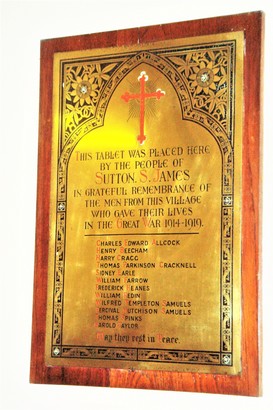 THIS TABLET WAS PLACED HERE
BY THE PEOPLE OF
SUTTON. S. JAMES
IN GRATEFUL REMEMBRANCE OF
THE MEN FROM THIS VILLAGE
WHO GAVE THEIR LIVES
IN THE GREAT WAR 1914-1919.
CHARLES EDWARD ALLCOCK
HENRY BEECHAM
HARRY CRAGG
THOMAS PARKINSON CRACKNELL
SIDNEY EARLE
WILLIAM FARROW
FREDERICK JEANES
WILLIAM MEDIN
WILFRED TEMPLETON SAMUELS
PERCIVAL HUTCHISON SAMUELS
THOMAS SPINKS
HAROLD TAYLOR
May they rest in Peace.